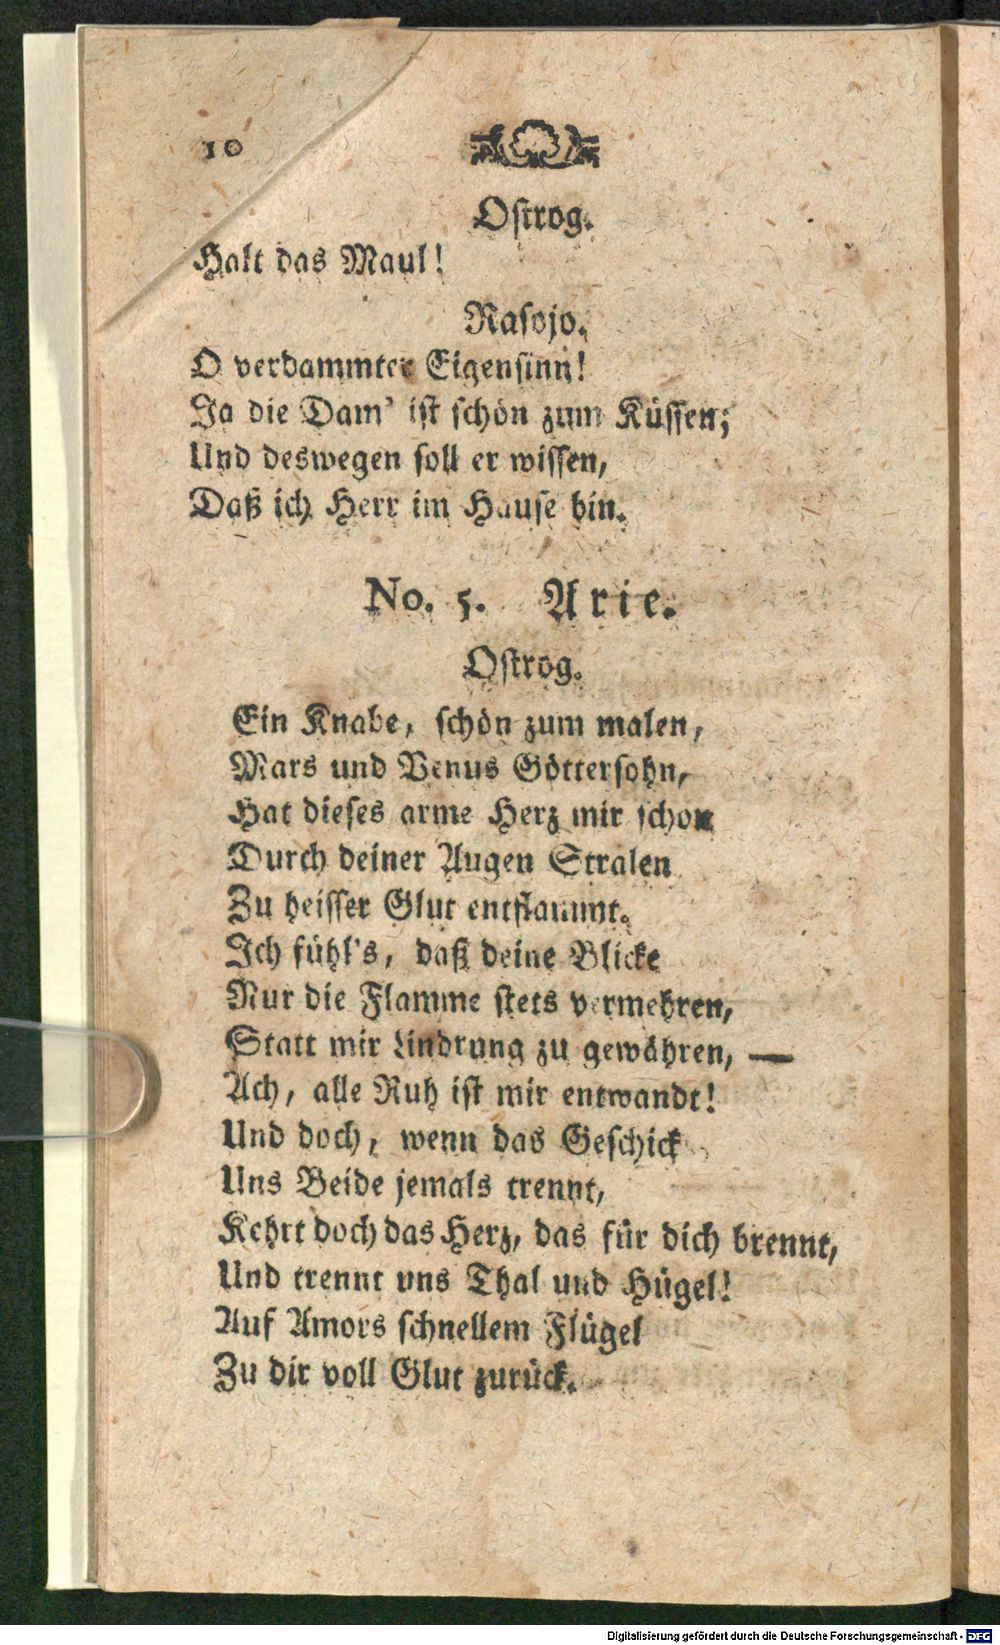 10
Ostrog.
Halt das Maul!
Rasojo.
O verdammter Eigensinn!
Ja die Dam' ist schön zum Küssen;
Und deswegen soll er wissen,
Daß ich Herr im Hause bin.
No. 5. Arie.
Ostrog.
Ein Knabe, schön zum malen,
Mars und Venus Göttersohn,
Hat dieses arme Herz mir schon
Durch deiner Augen Stralen
Zu heisser Glut entflammt.
Ich fühl's, daß deine Blicke
Nur die Flamme stets vermehren,
Statt mir Lindrung zu gewähren, —
Ach, alle Ruh ist mir entwandt!
Und doch, wenn das Geschick
Uns Beide jemals trennt,
Kehrt doch das Herz, das für dich brennt,
Und trennt uns Thal und Hügel!
Auf Amors schnellem Flügel
Zu dir voll Glut zurück.
Digitalisierung gefördert durch die Deutsche Forschungsgemeinschaft - DFG